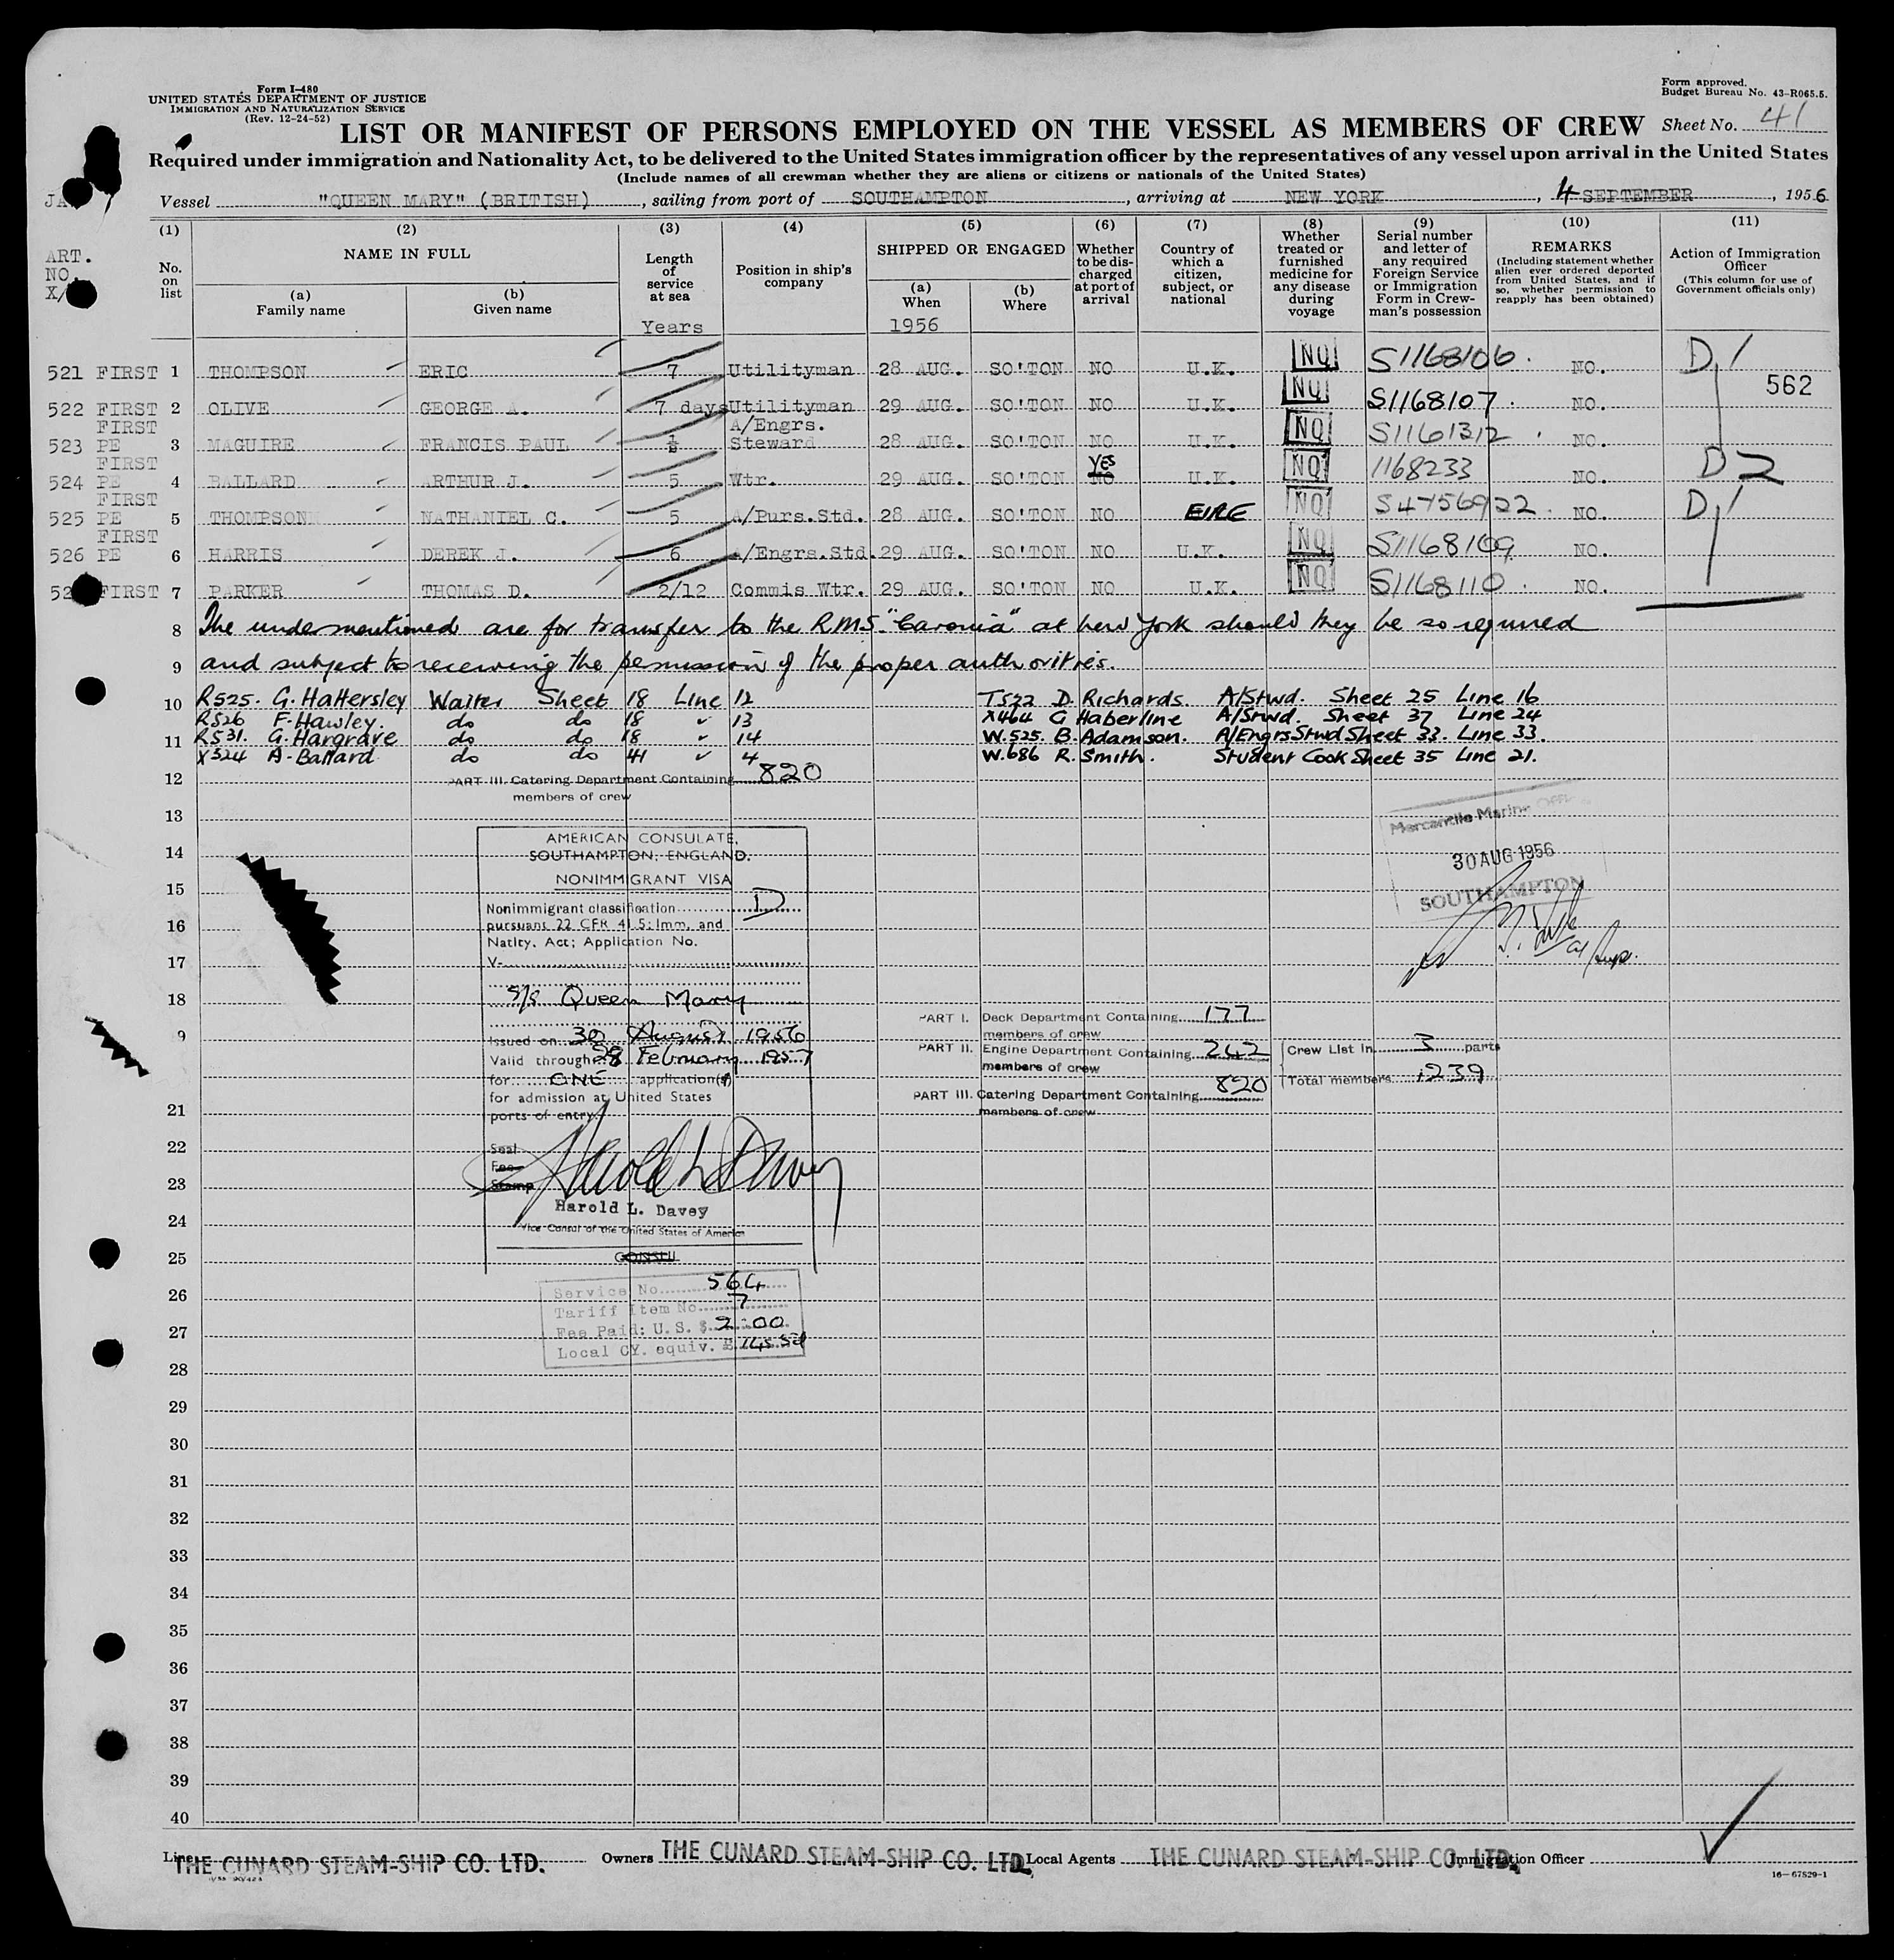 Form I-480
UNITED STATES DEPARTMENT OF JUSTICE
IMMIGRATION AND NATURALIZATION SERVICE
(Rev. 12-24-52)
Form approved.
Budget Bureau No. 43-R065.5.
LIST OR MANIFEST OF PERSONS EMPLOYED ON THE VESSEL AS MEMBERS OF CREW Sheet No. 41
Required under immigration and Nationality Act, to be delivered to the United States immigration officer by the representatives of any vessel upon arrival in the United States
(Include names of all crewman whether they are aliens or citizens or nationals of the United States)
Vessel "QUEEN MARY" (BRITISH), sailing from port of SOUTHAMPTON, arriving at NEW YORK, 4 SEPTEMBER, 1956
ART.
NO.
X/
(1) No. on list
(2) NAME IN FULL
(a) Family name
(b) Given name
(3) Length of service at sea
Years
(4) Position in ship's company
(5) SHIPPED OR ENGAGED
(a) When
1956
(b) Where
(6) Whether to be discharged at port of arrival
(7) Country of which a citizen, subject, or national
(8) Whether treated or furnished medicine for any disease during voyage
(9) Serial number and letter of any required Foreign Service or Immigration Form in Crewman's possession
(10) REMARKS (Including statement whether alien ever ordered deported from United States, and if so, whether permission to reapply has been obtained)
(11) Action of Immigration Officer (This column for use of Government officials only)
521 FIRST 1 THOMPSON ERIC 7 Utilityman 28 AUG. SO'TON NO U.K. NO S1168106. NO. D1
562
522 FIRST 2 OLIVE GEORGE A. 7 days Utilityman 29 AUG. SO'TON NO U.K. NO S1168107. NO.
523 FIRST PE 3 MAGUIRE FRANCIS PAUL ½ A/Engrs. Steward 28 AUG. SO'TON NO U.K. NO S1161312. NO.
524 FIRST PE 4 BALLARD ARTHUR J. 5 Wtr. 29 AUG. SO'TON YES NO U.K. NO 1168233 NO. D2
525 FIRST PE 5 THOMPSON NATHANIEL C. 5 A/Purs.Std. 28 AUG. SO'TON NO EIRE NO S4756922. NO. D1
526 FIRST PE 6 HARRIS DEREK J. 6 A/Engrs.Std. 29 AUG. SO'TON NO U.K. NO S1168109 NO.
52 FIRST 7 PARKER THOMAS D. 2/12 Commis Wtr. 29 AUG. SO'TON NO U.K. NO S1168110. NO.
8 The undermentioned are for transfer to the R.M.S. "Caronia" at New York should they be so required
9 and subject to receiving the permission of the proper authorities.
10 R525. G. Hattersley Waiter Sheet 18 Line 12 T522 D. Richards A/Stwd. Sheet 25 Line 16
R526 F. Hawley. do do 18 " 13 X464 G Haberline A/Stwd. Sheet 37 Line 24
11 R531. G. Hargrave do do 18 " 14 W.525. B. Adamson. A/Engrs Stwd Sheet 33. Line 33.
X324 A. Ballard do do 41 " 4 W.686 R. Smith. Student Cook Sheet 35 Line 21.
12 PART III. Catering Department Containing 820
members of crew
13
14 AMERICAN CONSULATE,
SOUTHAMPTON, ENGLAND.
NONIMMIGRANT VISA
Mercantile Marine OFFICE
30 AUG 1956
SOUTHAMPTON
15 Nonimmigrant classification D
16 pursuans 22 CFR 41.5; Imm. and
Natlty. Act; Application No.
17 V-
18 S/S Queen Mary
9 Issued on 30 August 1956
Valid through 28 February 1957
for ONE application(s)
for admission at United States
21 ports of entry.
PART I. Deck Department Containing 177
members of crew
PART II. Engine Department Containing 242
members of crew
PART III. Catering Department Containing 820
members of crew
Crew List in 3 parts
Total members 1239
22 Seal
Fee
23 Stamp
Harold L. Davey
Harold L. Davey
24 Vice Consul of the United States of America
25 CONSUL
Service No. 564
26 Tariff Item No. 7
27 Fee Paid: U.S. $ 2.00
Local CY. equiv. £ 14s 5d
28
29
30
31
32
33
34
35
36
37
38
39
40
Line THE CUNARD STEAM-SHIP CO. LTD. Owners THE CUNARD STEAM-SHIP CO. LTD. Local Agents THE CUNARD STEAM-SHIP CO. LTD. Immigration Officer
16-67829-1